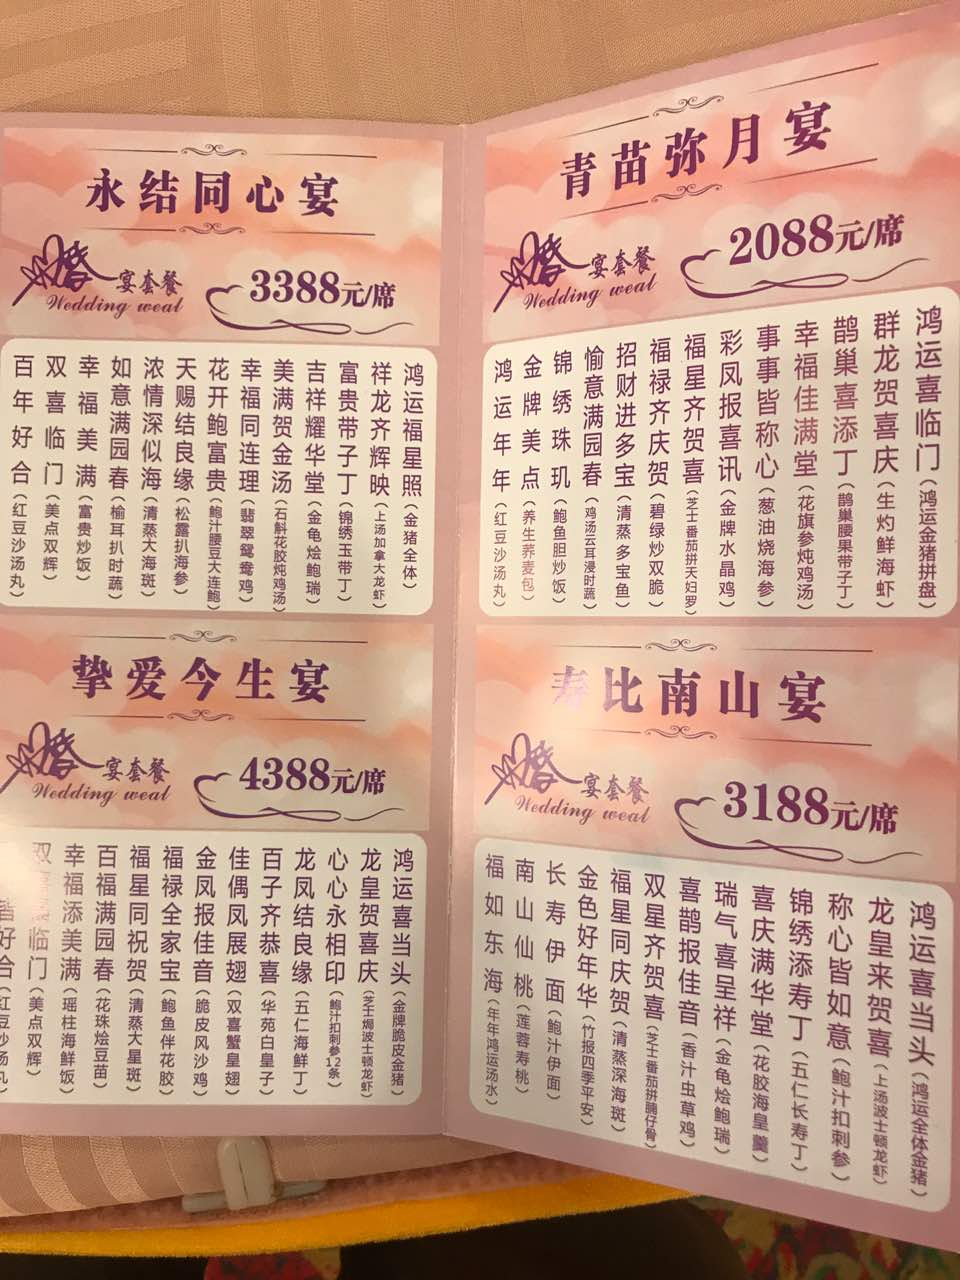 永结同心宴
婚
宴套餐
Wedding weal
3388元/席
鸿运福星照（金猪全体）
祥龙齐辉映（上汤加拿大龙虾）
富贵带子丁（锦绣玉带丁）
吉祥耀华堂（金龟烩鲍瑞）
美满贺金汤（石斛花胶炖鸡汤）
幸福同连理（翡翠鸳鸯鸡）
花开鲍富贵（鲍汁腰豆大连鲍）
天赐结良缘（松露扒海参）
浓情深似海（清蒸大海斑）
如意满园春（榆耳扒时蔬）
幸福美满（富贵炒饭）
双喜临门（美点双辉）
百年好合（红豆沙汤丸）
挚爱今生宴
婚
宴套餐
Wedding weal
4388元/席
鸿运喜当头（金牌脆皮金猪）
龙皇贺喜庆（芝士焗波士顿龙虾）
心心永相印（鲍汁扣刺参12条）
龙凤结良缘（五仁海鲜丁）
百子齐恭喜（华苑白皇子）
佳偶凤展翅（双喜蟹皇翅）
金凤报佳音（脆皮风沙鸡）
福禄全家宝（鲍鱼伴花胶）
福星同祝贺（清蒸大星斑）
百福满园春（花珠烩豆苗）
幸福添美满（瑶柱海鲜饭）
双喜临门（美点双辉）
皆好合（红豆沙汤丸）
青苗弥月宴
婚
宴套餐
Wedding weal
2088元/席
鸿运喜临门（鸿运金猪拼盘）
群龙贺喜庆（生灼鲜海虾）
鹊巢喜添丁（鹊巢腰果带子丁）
幸福佳满堂（花旗参炖鸡汤）
事事皆称心（葱油烧海参）
彩凤报喜讯（金牌水晶鸡）
福星齐贺喜（芝士番茄拼天妇罗）
福禄齐庆贺（碧绿炒双脆）
招财进多宝（清蒸多宝鱼）
愉意满园春（鸡汤云耳浸时蔬）
锦绣珠玑（鲍鱼胆炒饭）
金牌美点（养生荞麦包）
鸿运年年（红豆沙汤丸）
寿比南山宴
婚
宴套餐
Wedding weal
3188元/席
鸿运喜当头（鸿运全体金猪）
龙皇来贺喜（上汤波士顿龙虾）
称心皆如意（鲍汁扣刺参）
锦绣添寿丁（五仁长寿丁）
喜庆满华堂（花胶海皇羹）
瑞气喜呈祥（金龟烩鲍瑞）
喜鹊报佳音（香汁虫草鸡）
双星齐贺喜（芝士番茄拼腩仔骨）
福星同庆贺（清蒸深海斑）
金色好年华（竹报四季平安）
长寿伊面（鲍汁伊面）
南山仙桃（莲蓉寿桃）
福如东海（年年鸿运汤水）